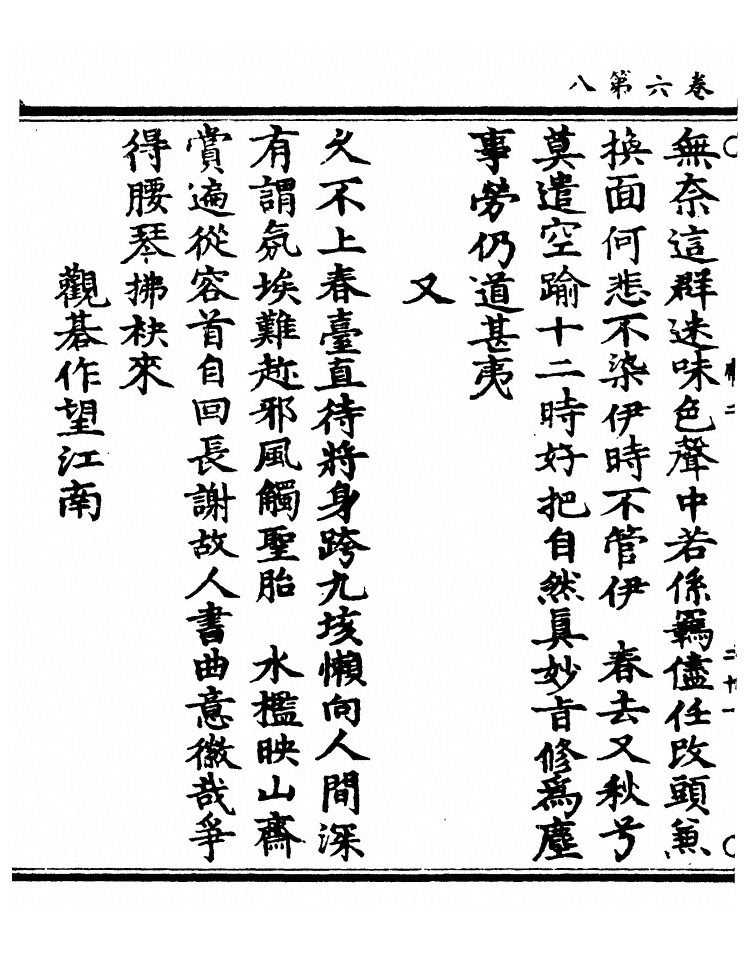 卷六第八
無奈這群迷味色聲中若係羈儘任改頭兼
換面何悲不染伊時不管伊　春去又秋兮
莫遣空踰十二時好把自然眞妙旨修爲塵
事勞仍道甚夷
又
久不上春臺直待將身跨九垓懶向人間深
有謂氛埃難趂邪風觸聖胎　水檻映山齋
賞遍從容首自回長謝故人書曲意徽哉爭
得腰琴拂袂來
觀碁作望江南